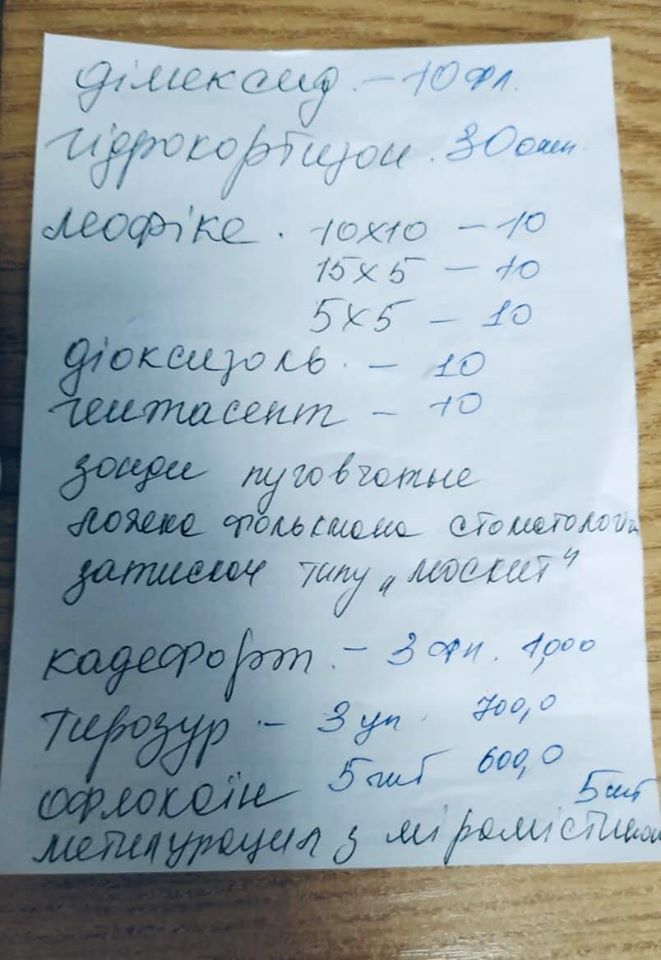 дімексид. – 10 фл.
гідрокортизон. 30 амп.
меофікс. 10х10 – 10
15х5 – 10
5х5 – 10
діоксизоль. – 10
гентасепт – 10
зонди пуговчатые
ложека фолькмана стоматологіч
затискач типу „москит"
кадефорт. – 3 фл. 1,000
Тирозур – 3 уп. 700,0
Офлокаїн 5 шт 600,0
5 шт
метилурацил з мірамістином